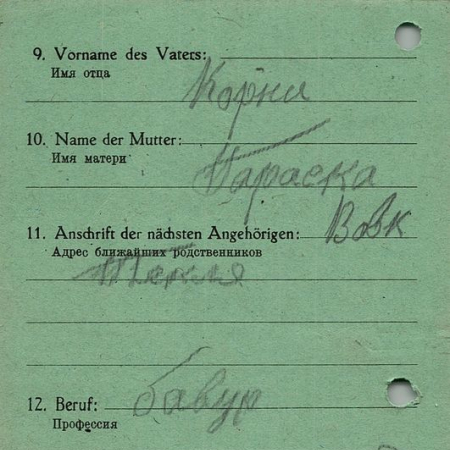 9. Vorname des Vaters:
Имя отца
Корни
10. Name der Mutter:
Имя матери
Параска
11. Anschrift der nächsten Angehörigen: Вовк
Адрес ближайших родственников
Текля
12. Beruf:
Профессия